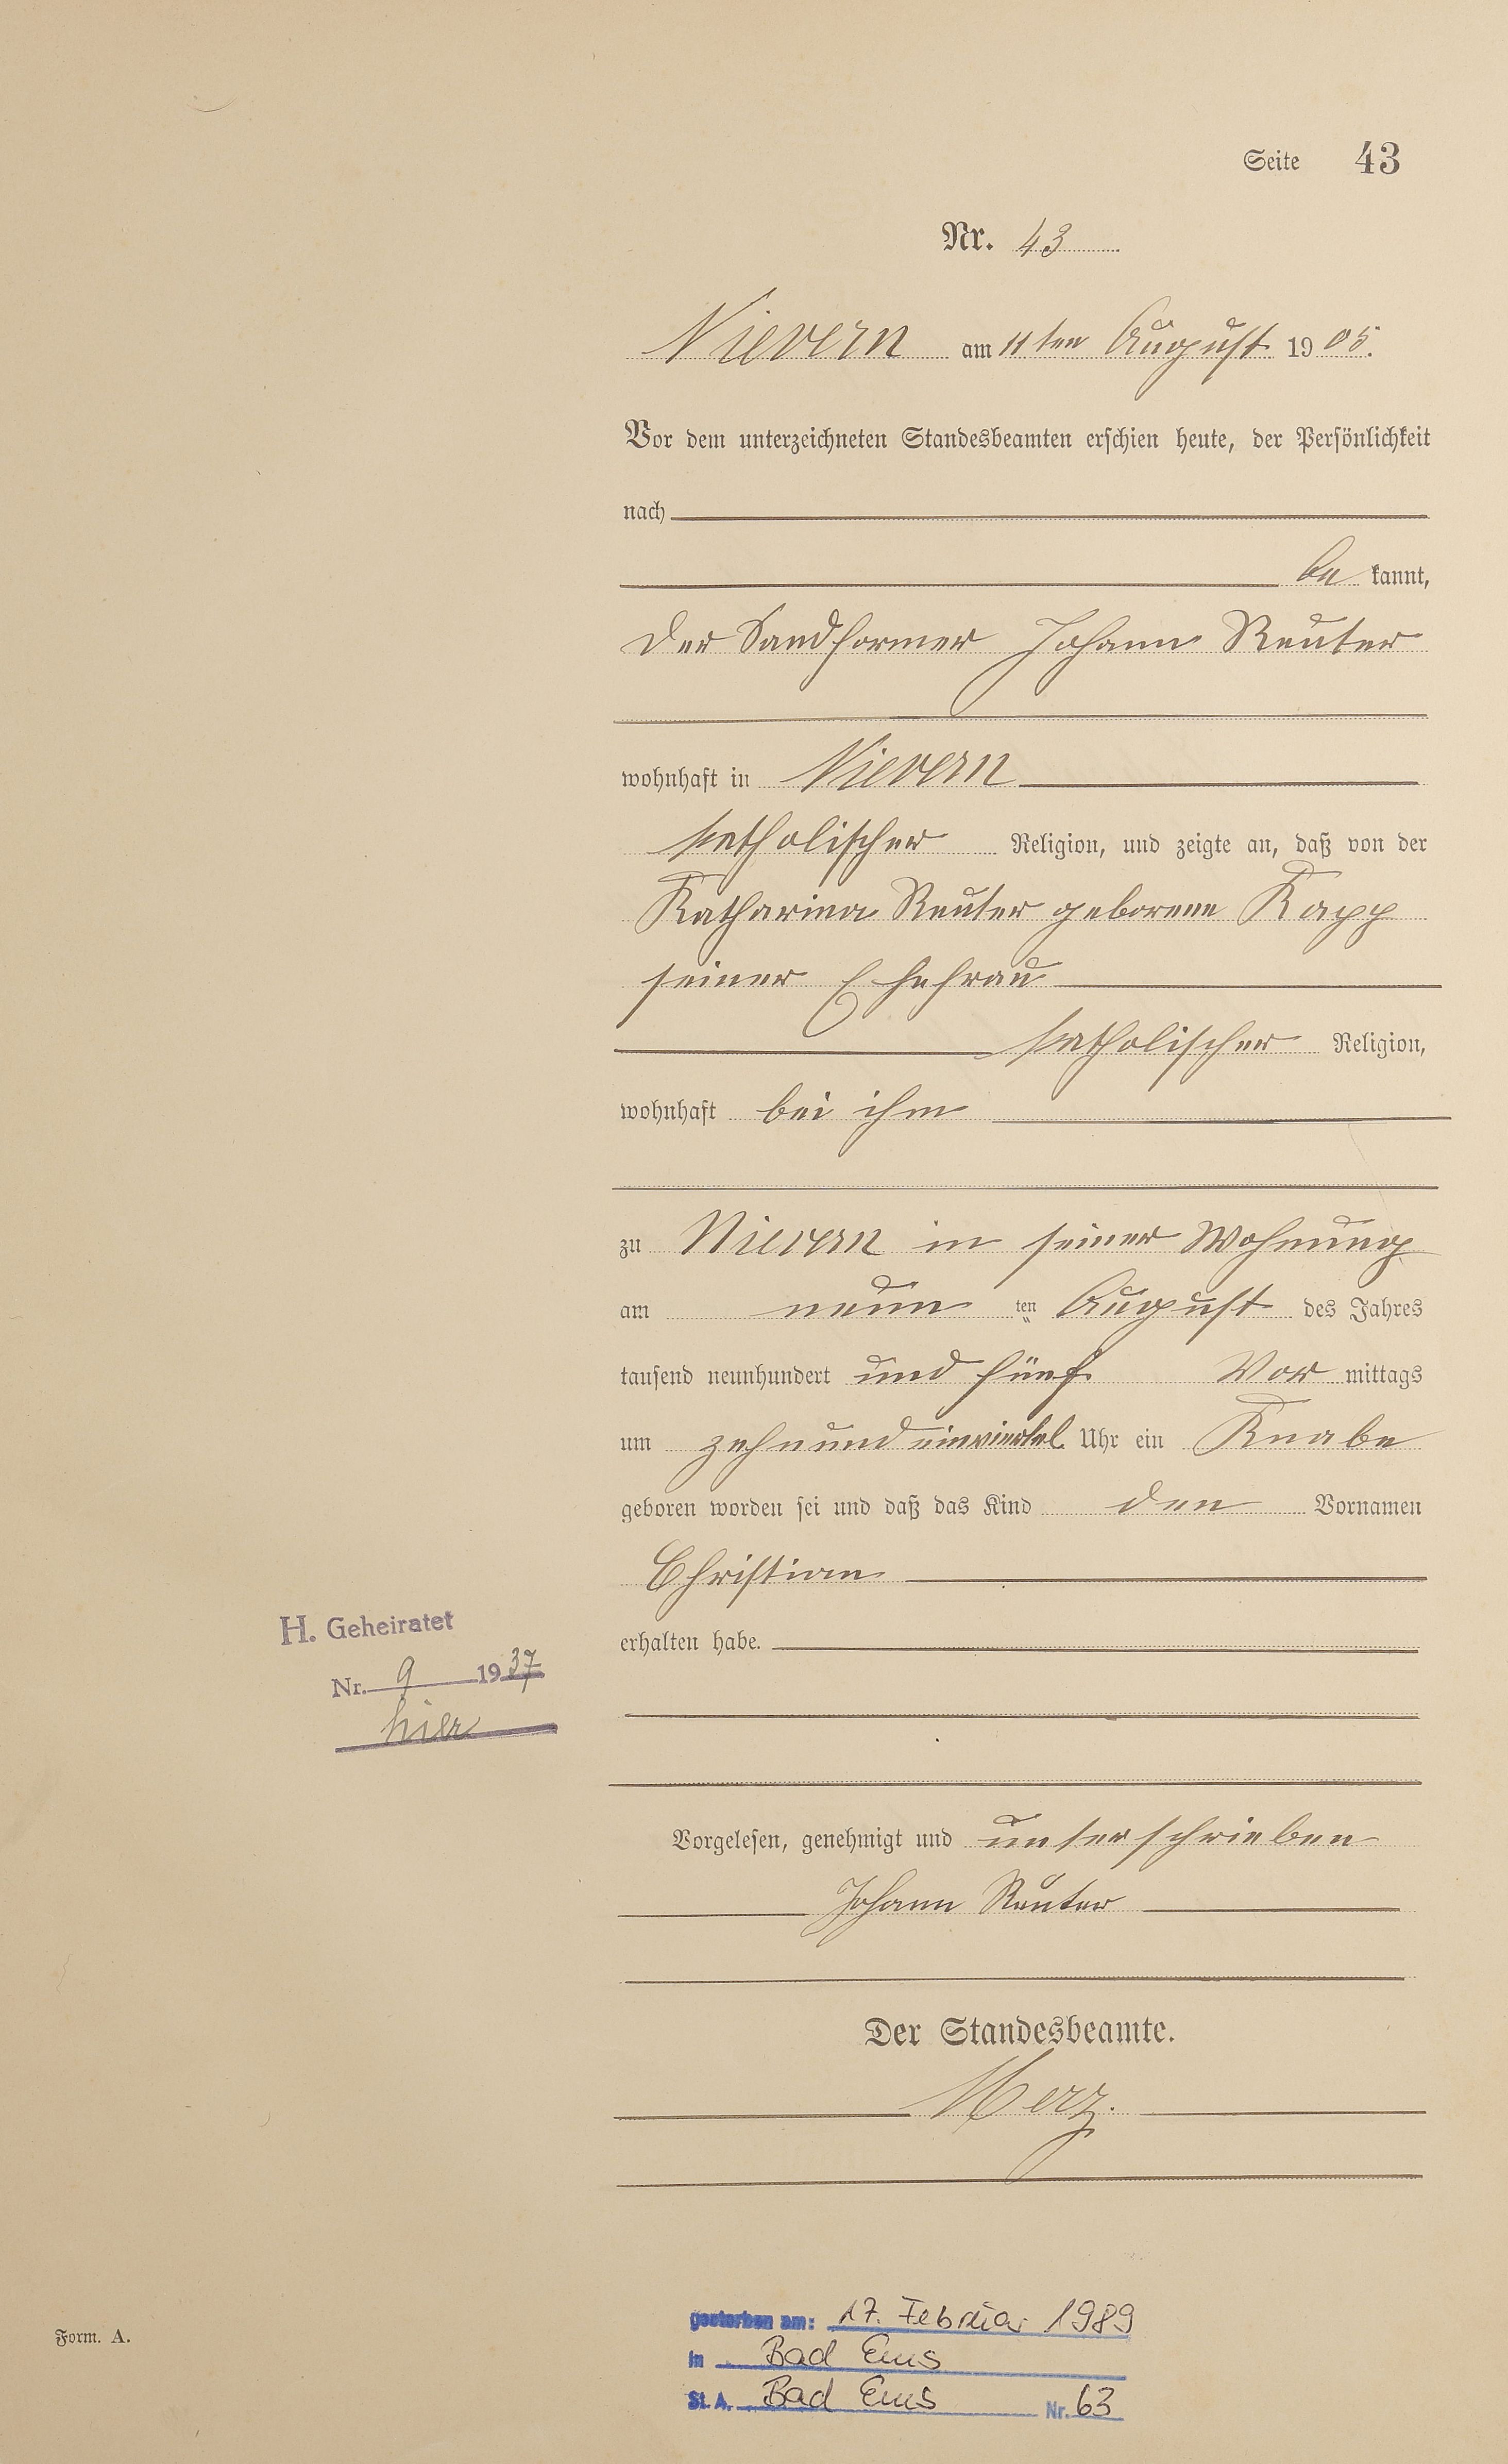 Seite 43
Nr. 43
Nievern am 11ten August 1905.
Vor dem unterzeichneten Standesbeamten erschien heute, der Persönlichkeit
nach
be kannt,
der Sandformer Johann Reuter
wohnhaft in Nievern
katholischer Religion, und zeigte an, daß von der
Katharina Reuter geborene Kapp
seiner Ehefrau
katholischer Religion,
wohnhaft bei ihm
zu Nievern in seiner Wohnung
am neun ten August des Jahres
tausend neunhundert und fünf Vor mittags
um zehnundeinviertel Uhr ein Knabe
geboren worden sei und daß das Kind den Vornamen
Christian
erhalten habe.
H. Geheiratet
Nr. 9 1937
hier
Vorgelesen, genehmigt und unterschrieben
Johann Reuter
Der Standesbeamte.
Merz.
gestorben am: 17. Februar 1989
in Bad Ems
St. A. Bad Ems Nr. 63
Form. A.